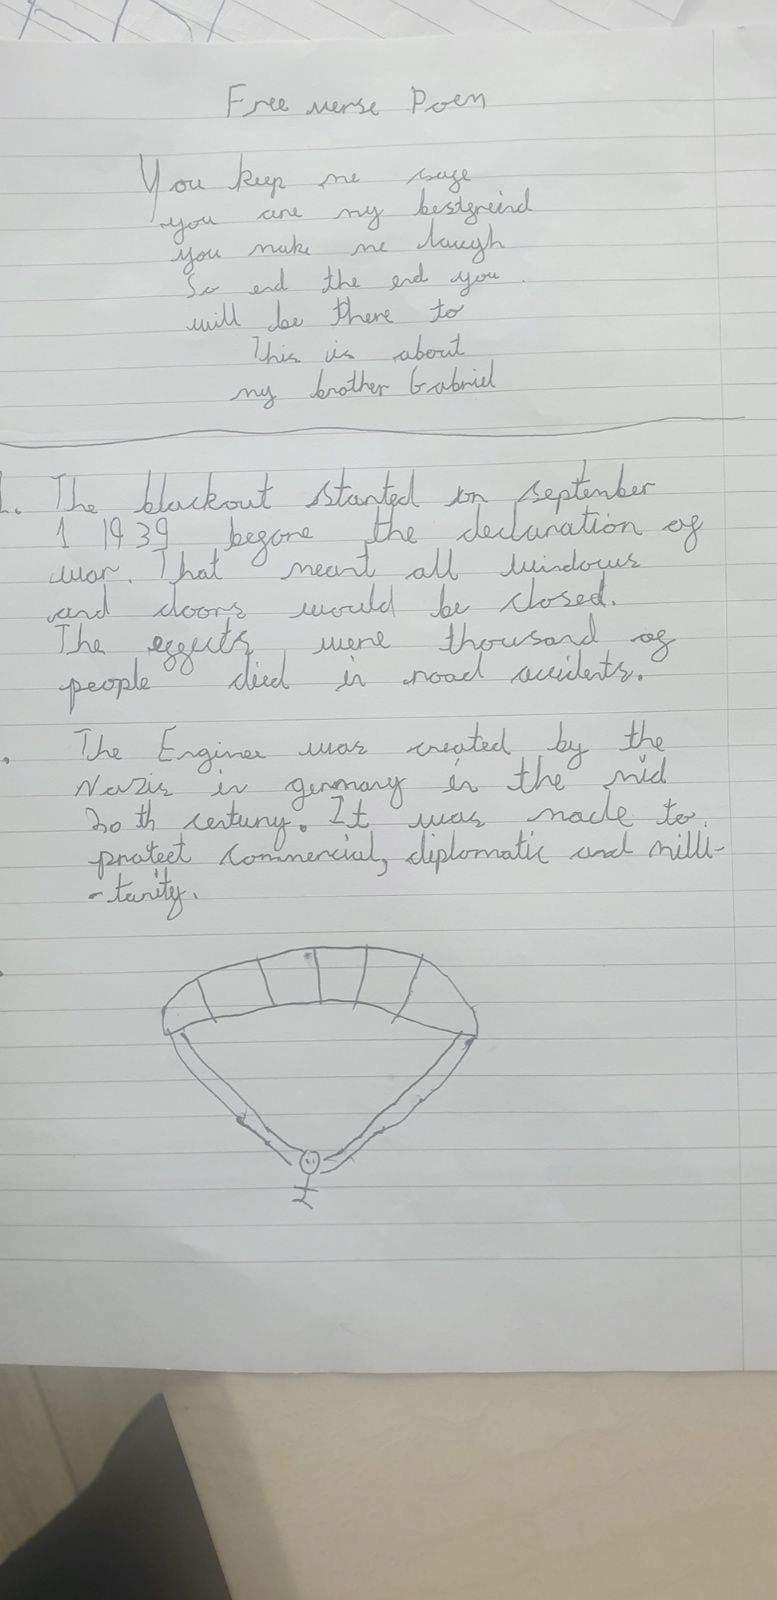 Free verse Poem
You keep me safe
you are my bestfreind
you make me laugh
So end the end you
will be there to
This is about
my brother Gabriel
1. The blackout started on september
1 1939 before the declaration of
war. That meant all windows
and doors would be closed.
The effects were thousand of
people died in road accidents.
The Enigma was created by the
Nazis in germany in the mid
20 th century. It was made to
protect commercial, diplomatic and milli-
-tarity.